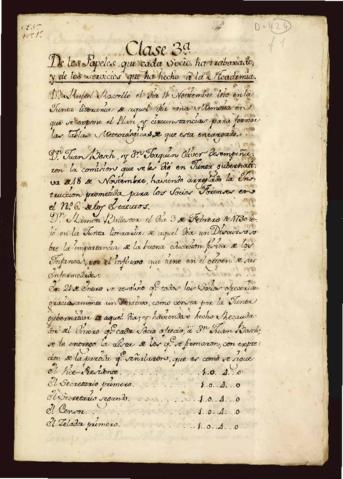 Clase 3ª
De los Papeles que cada Socio ha trabaxado,
y de los servicios que ha hecho a la Academia.
el dia 14 Noviembre leyó en la
Junta literaria de aquel dia una Memoria en
que se expone el Plan y circunstancias para formar
las tablas Meteorologicas de que esta encargado.
Dⁿ Juan Bosch, y Dⁿ Joaquin Oliver desempeña-
ron la comision que se les dió en Junta gubernati-
va de 18 de Noviembre, haviendo arreglado la Ins-
truccion prometida para los Socios Forenses en
el Nº 6 de los Estatutos.
Dⁿ Ramon el dia 3 de Febrero de 1790 le-
yó en la Junta literaria de aquel dia un Discurso so-
bre la importancia de la buena educacion fisica de los
Infantes, por el influxo que tiene en el origen de sus
enfermedades.
En 21 de Enero se resolvió qᵉ todos los Socios
graciosamente un como consta por la Junta
gubernativa de aquel dia, y haviendose hecho
del Dinero qᵉ cada Socio ofreció, a Dⁿ Juan Bosch
se le entregó la lista de los qᵉ se firmaron, con expre-
sion de la partida qᵉ señalaron, que es como se sigue
El Vice-Presidente. 1.. 0.. 4.. 0
El Secretario primero. 1.. 0.. 4.. 0
El Secretario segundo. 1.. 0.. 4.. 0
El Censor. 1.. 0.. 4.. 0
El Zelador primero. 1.. 0.. 4.. 0